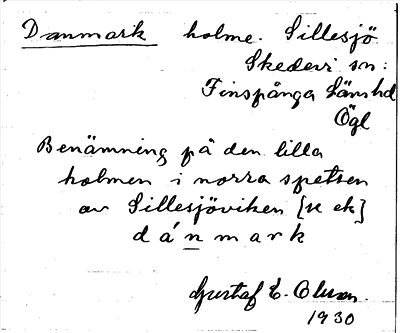 Danmark holme. Sillesjö
Skedevi sn:
Finspånga Länshd
Ögl
Benämning på den lilla
holmen i norra spetsen
av Sillesjöviken [se ek]
dánmark
Gustaf E. Olsson.
1930